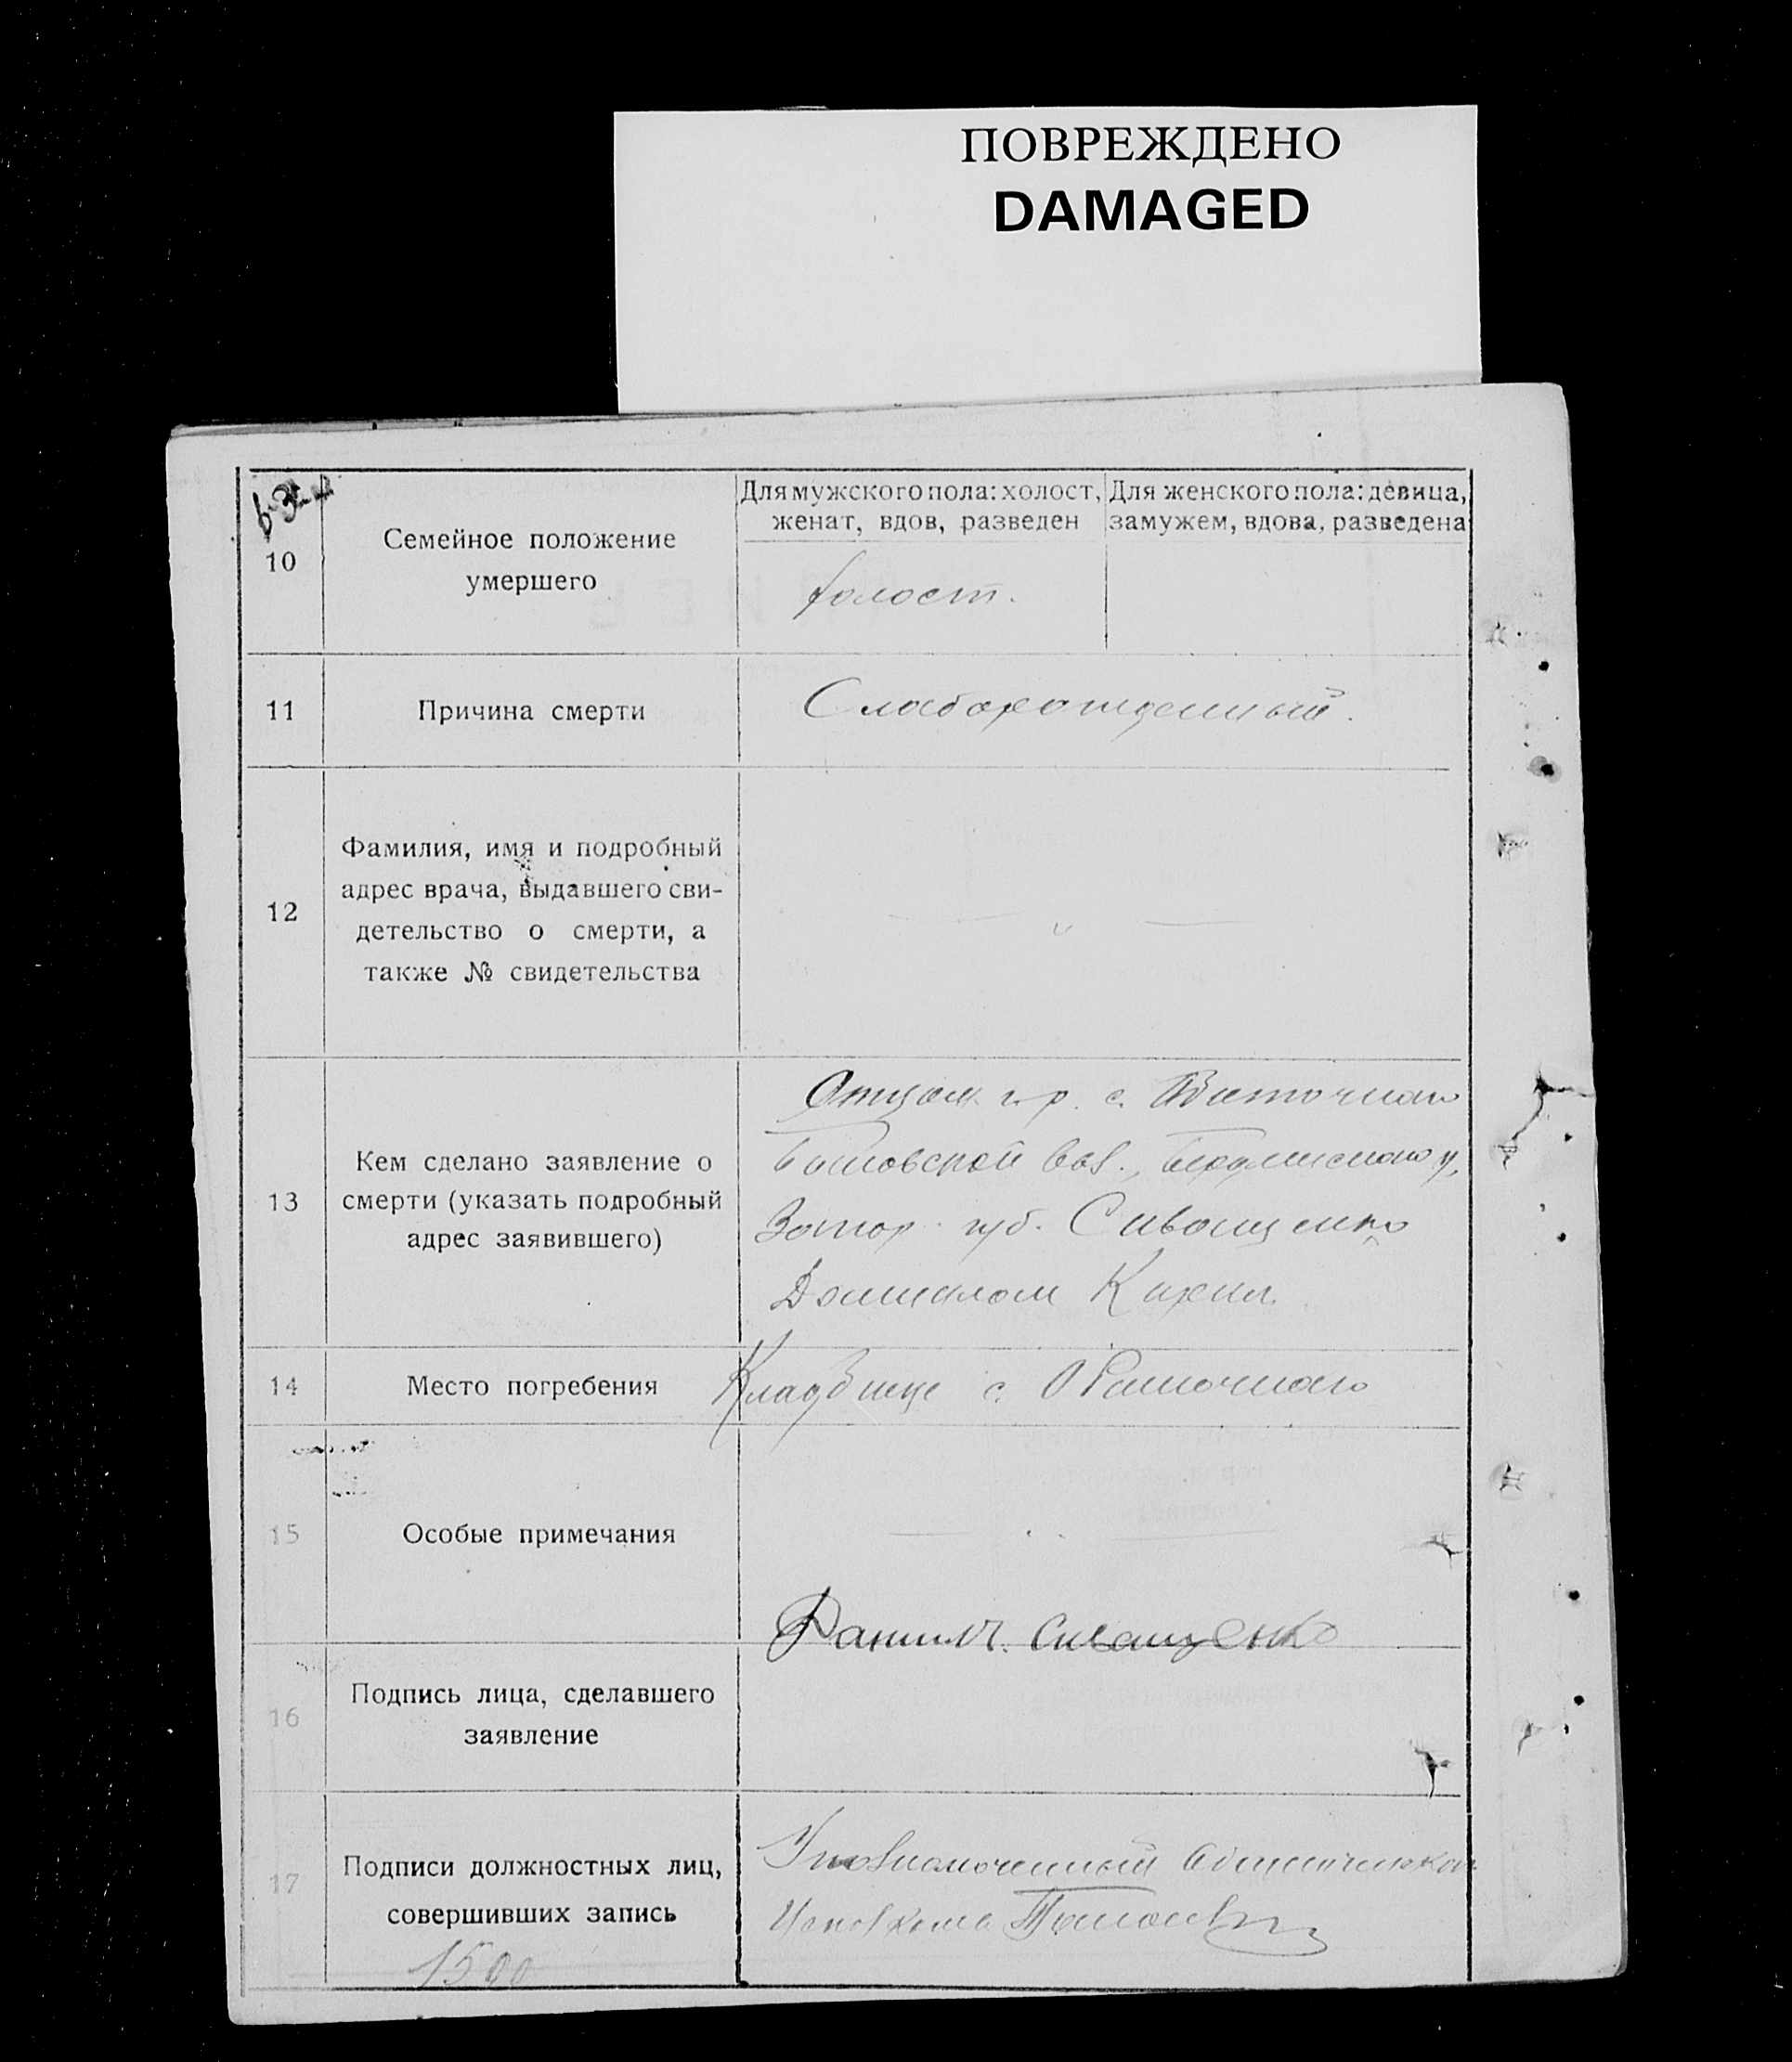 ПОВРЕЖДЕНО
DAMAGED
10
Семейное положение
умершего
Для мужского пола: холост,
женат, вдов, разведен
Для женского пола: девица,
замужем, вдова, разведена
холост.
11
Причина смерти
Слаборожденный.
12
Фамилия, имя и подробный
адрес врача, выдавшего сви-
детельство о смерти, а
также № свидетельства
13
Кем сделано заявление о
смерти (указать подробный
адрес заявившего)
Отцом гр. с.
вол., у,
Запор. губ. Сиващенко
Даниилом Кирил.
14
Место погребения
Кладбище с. Обиточного
15
Особые примечания
Данило Сиващенко
16
Подпись лица, сделавшего
заявление
17
Подписи должностных лиц,
совершивших запись
Уполномоченный
Исполкома
1500